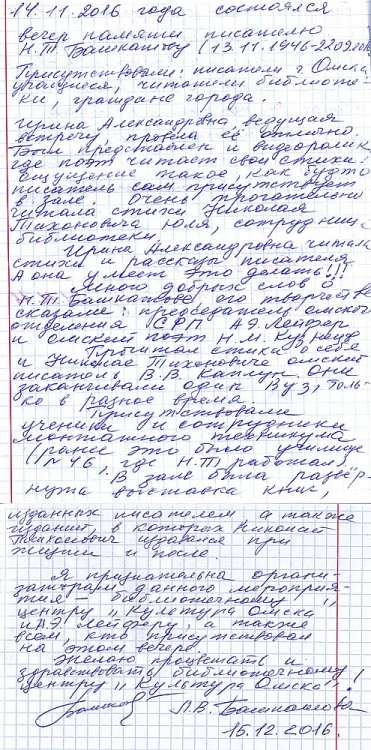 14.11.2016 года состоялся
вечер памяти писателю
Н.Т. Башкатову (13.11.1946-22.09.
Присутствовали: писатели г. Омска,
учащиеся, читатели библиоте-
ки, граждане города.
Ирина Александровна ведущая
встречу провела её отлично.
Был представлен и видеоролик,
где поэт читает свои стихи.
Ощущение такое, как будто
писатель сам присутствует
в зале. Очень трогательно
читала стихи Николая
Тихоновича Юля, сотрудниц
библиотеки.
Ирина Александровна читала
стихи и рассказы писателя
А она умеет это делать!!!
Много добрых слов о
Н.Т. Башкатове, его творчестве
сказали: председатель омского
отделения СРП А.Э. Лейфер
и омский поэт Н.М. Кузнецов
Прочитал стихи о себе
и Николае Тихоновиче омский
писатель В.В. Кавкун. Они
заканчивали один ВУЗ, толь-
ко в разное время.
Присутствовали
ученики и сотрудники
монтажного техникума
(ранее это было училище
№46, где Н.Т. работал).
В зале была развёр-
нута выставка книг,
изданных писателем а также
изданий, в которых Николай
Тихонович издавался при
жизни и после.
Я признательна органи-
заторам данного мероприя-
тия - библиотечному
центру „Культура Омска"
и А.Э. Лейферу, а также
всем, кто присутствовал
на этом вечере.
Желаю процветать и
здравствовать библиотечному
центру „Культура Омска"!
Л.В. Башкатова
15.12.2016.